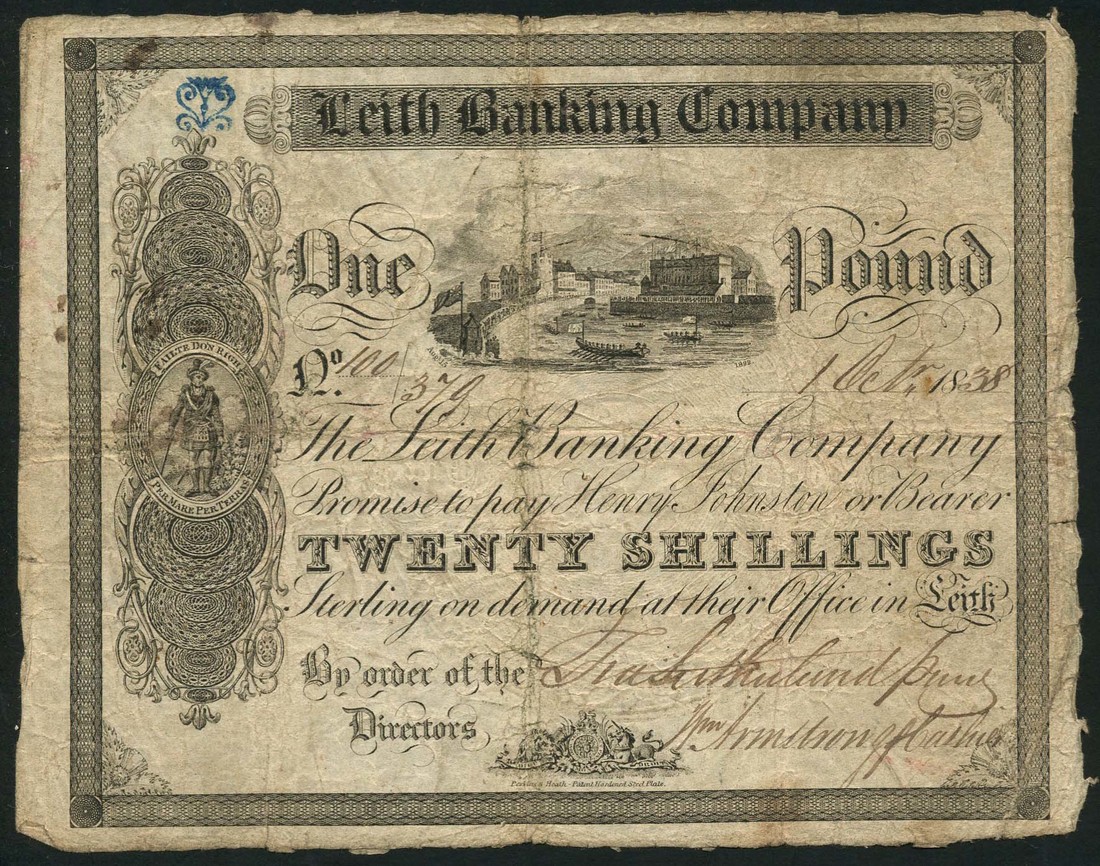 Leith Banking Company
One Pound
FAILTE DON RIGH
PER MARE PER TERRAS
August 1822
No. 100/379
1 Octr. 1838
The Leith Banking Company
Promise to pay Henry Johnston or Bearer
TWENTY SHILLINGS
Sterling on demand at their Office in Leith
By order of the
Directors
Wm Armstrong Cashier
Perkins & Heath - Patent Hardened Steel Plate.